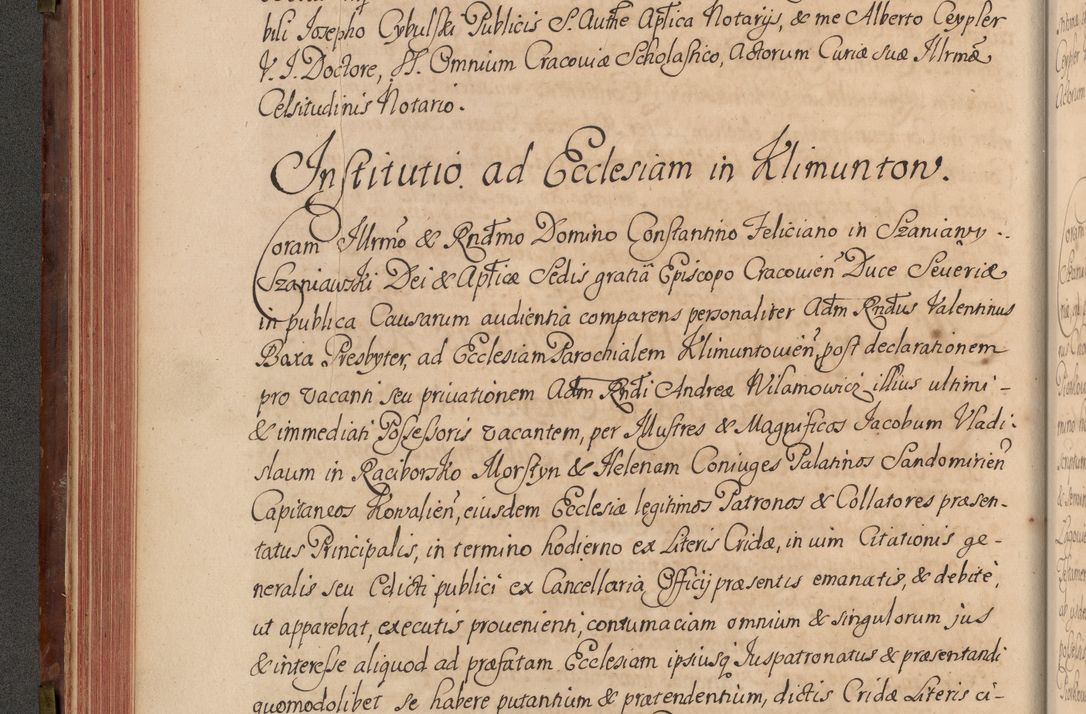 bili Josepho Cybulski Publicis S. Authe Aptica Notarijs, & me Alberto Ceypler
V. J. Doctore, SS. Omnium Cracoviæ Scholastico, Actorum Curiæ suæ Illrmæ
Celsitudinis Notario.
Institutio ad Ecclesiam in Klimuntow.
Coram Illrmo & Rndmo Domino Constantino Feliciano in Szaniawy
Szaniawski Dei & Apticæ Sedis gratiâ Episcopo Cracovien Duce Severiæ
in publica Causarum audientia comparens personaliter Adm Rndus Valentinus
Baxa Presbyter, ad Ecclesiam Parochialem Klimuntovien, post declarationem
pro vacanti seu privationem Adm Rndi Andreæ Wilamowicz illius ultimi -
& immediati Possessoris vacantem, per Illustres & Magnificos Jacobum Vladi-
slaum in Raciborsko Morstyn & Helenam Coniuges Palatinos Sandomirien
Capitaneos Kowalien, eiusdem Ecclesiæ legitimos Patronos & Collatores præsen-
tatus Principalis, in termino hodierno ex Literis Cridæ, in vim Citationis ge-
neralis seu Edicti publici ex Cancellaria Officij præsentis emanatis, & debitè,
ut apparebat, executis provenienti, contumaciam omnium & singulorum jus
& interesse aliquod ad præfatam Ecclesiam ipsiusq Juspatronatus & præsentandi
quomodolibet se habere putantium & prætendentium, dictis Cridæ Literis ci-